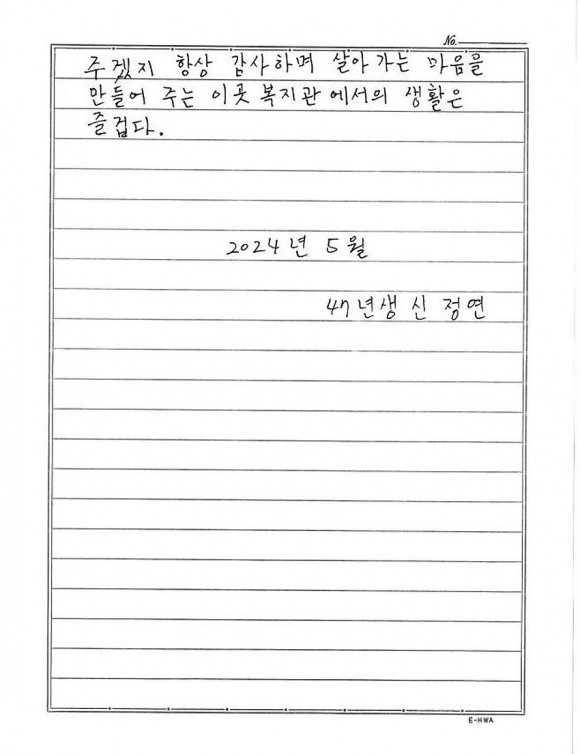 No.
주겠지 항상 감사하며 살아가는 마음을
만들어 주는 이곳 복지관에서의 생활은
즐겁다.
2024년 5월
47년생 신정연
E-HWA